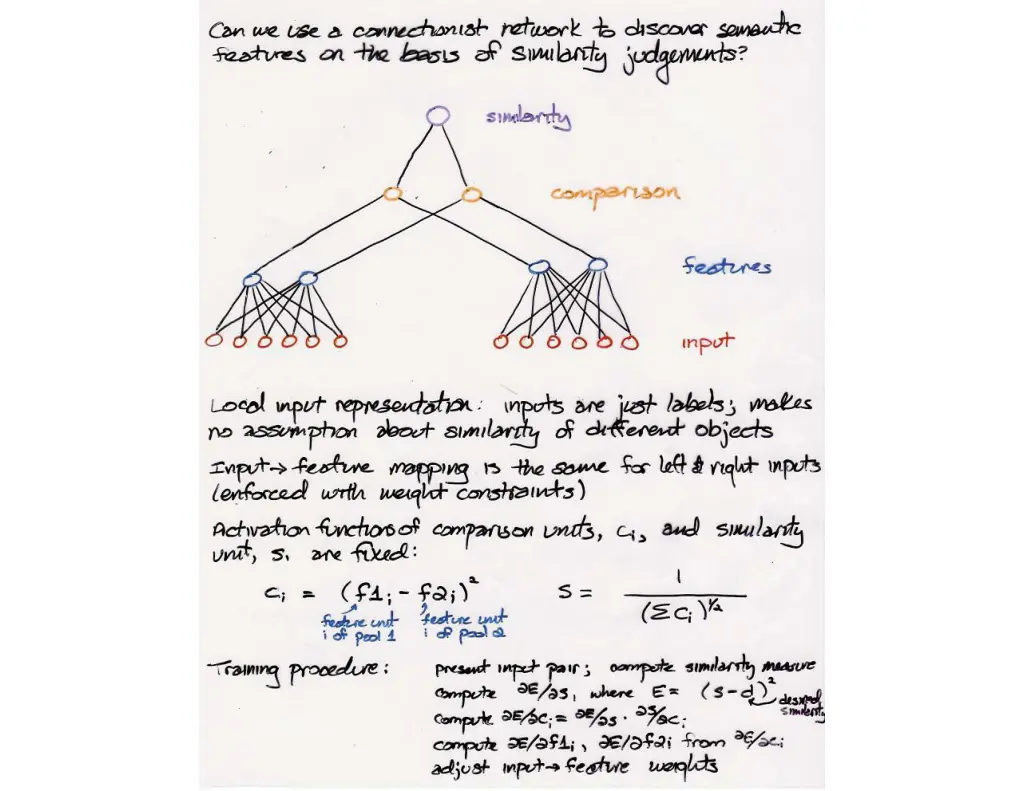 Can we use a connectionist network to discover semantic
features on the basis of similarity judgements?
similarity
comparison
features
input
Local input representation: inputs are just labels; makes
no assumption about similarity of different objects
Input→feature mapping is the same for left & right inputs
(enforced with weight constraints)
Activation functions of comparison units, ci, and similarity
unit, s, are fixed:
ci = (f1i - f2i)² S = 1 / (Σ ci)^½
feature unit i of pool 1 feature unit i of pool 2
Training procedure: present input pair; compute similarity measure
compute ∂E/∂s, where E = (s-d)² desired similarity
compute ∂E/∂ci = ∂E/∂s · ∂s/∂ci
compute ∂E/∂f1i, ∂E/∂f2i from ∂E/∂ci
adjust input→feature weights